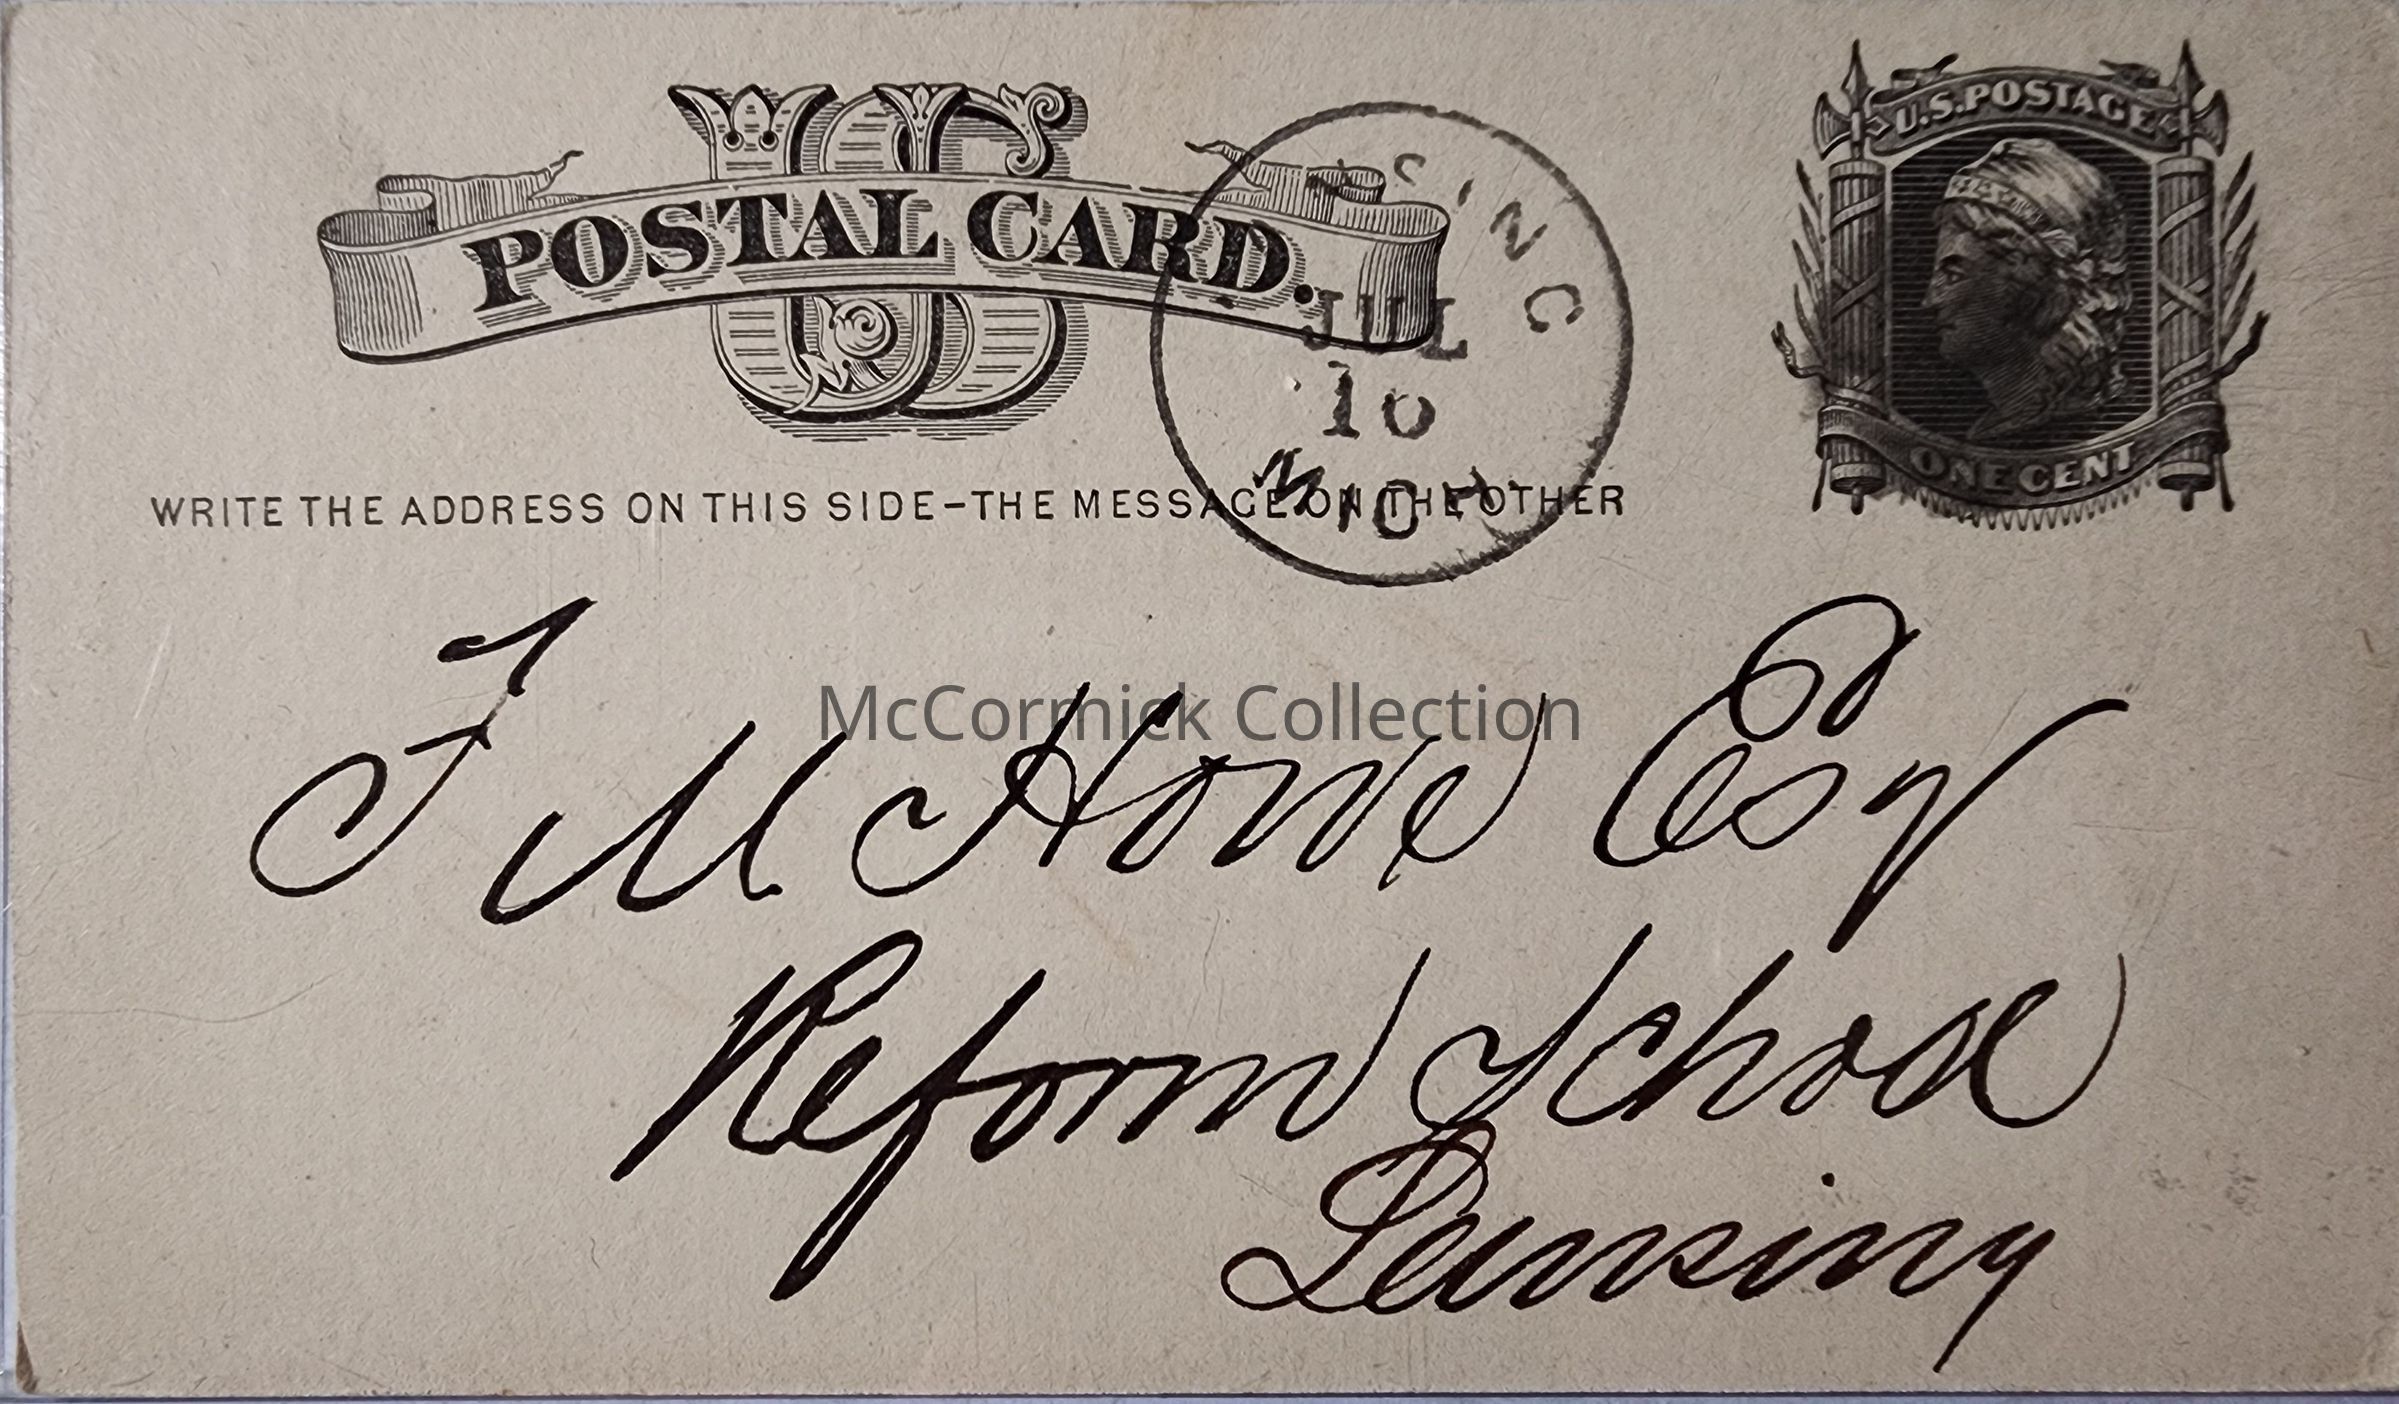 U.S.POSTAGE
US
POSTAL CARD.
SING
JUL
10
MICH
ONE CENT
WRITE THE ADDRESS ON THIS SIDE-THE MESSAGE ON THE OTHER
F M Howe Esq
McCormick Collection
Reform School
Lansing